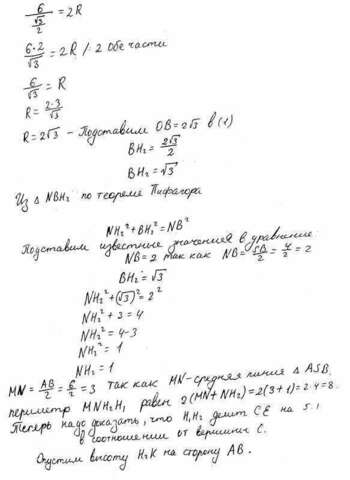 6/(√3/2) = 2R
6·2/√3 = 2R /:2 Обе части
6/√3 = R
R = 2·3/√3
R = 2√3 – Подставим OB = 2√3 в (1)
BH₂ = 2√3/2
BH₂ = √3
Из △ NBH₂ по теореме Пифагора
NH₂² + BH₂² = NB²
Подставим известные значения в уравнение
NB = 2 так как NB = SB/2 = 4/2 = 2
BH₂ = √3
NH₂² + (√3)² = 2²
NH₂² + 3 = 4
NH₂² = 4-3
NH₂² = 1
NH₂ = 1
MN = AB/2 = 6/2 = 3 так как MN – средняя линия △ ASB.
периметр MNH₂H₁ равен 2(MN+NH₂) = 2(3+1) = 2·4 = 8.
Теперь надо доказать, что H₁H₂ делит CE на 5:1
в соотношении от вершины C.
Опустим высоту H₂K на сторону AB.